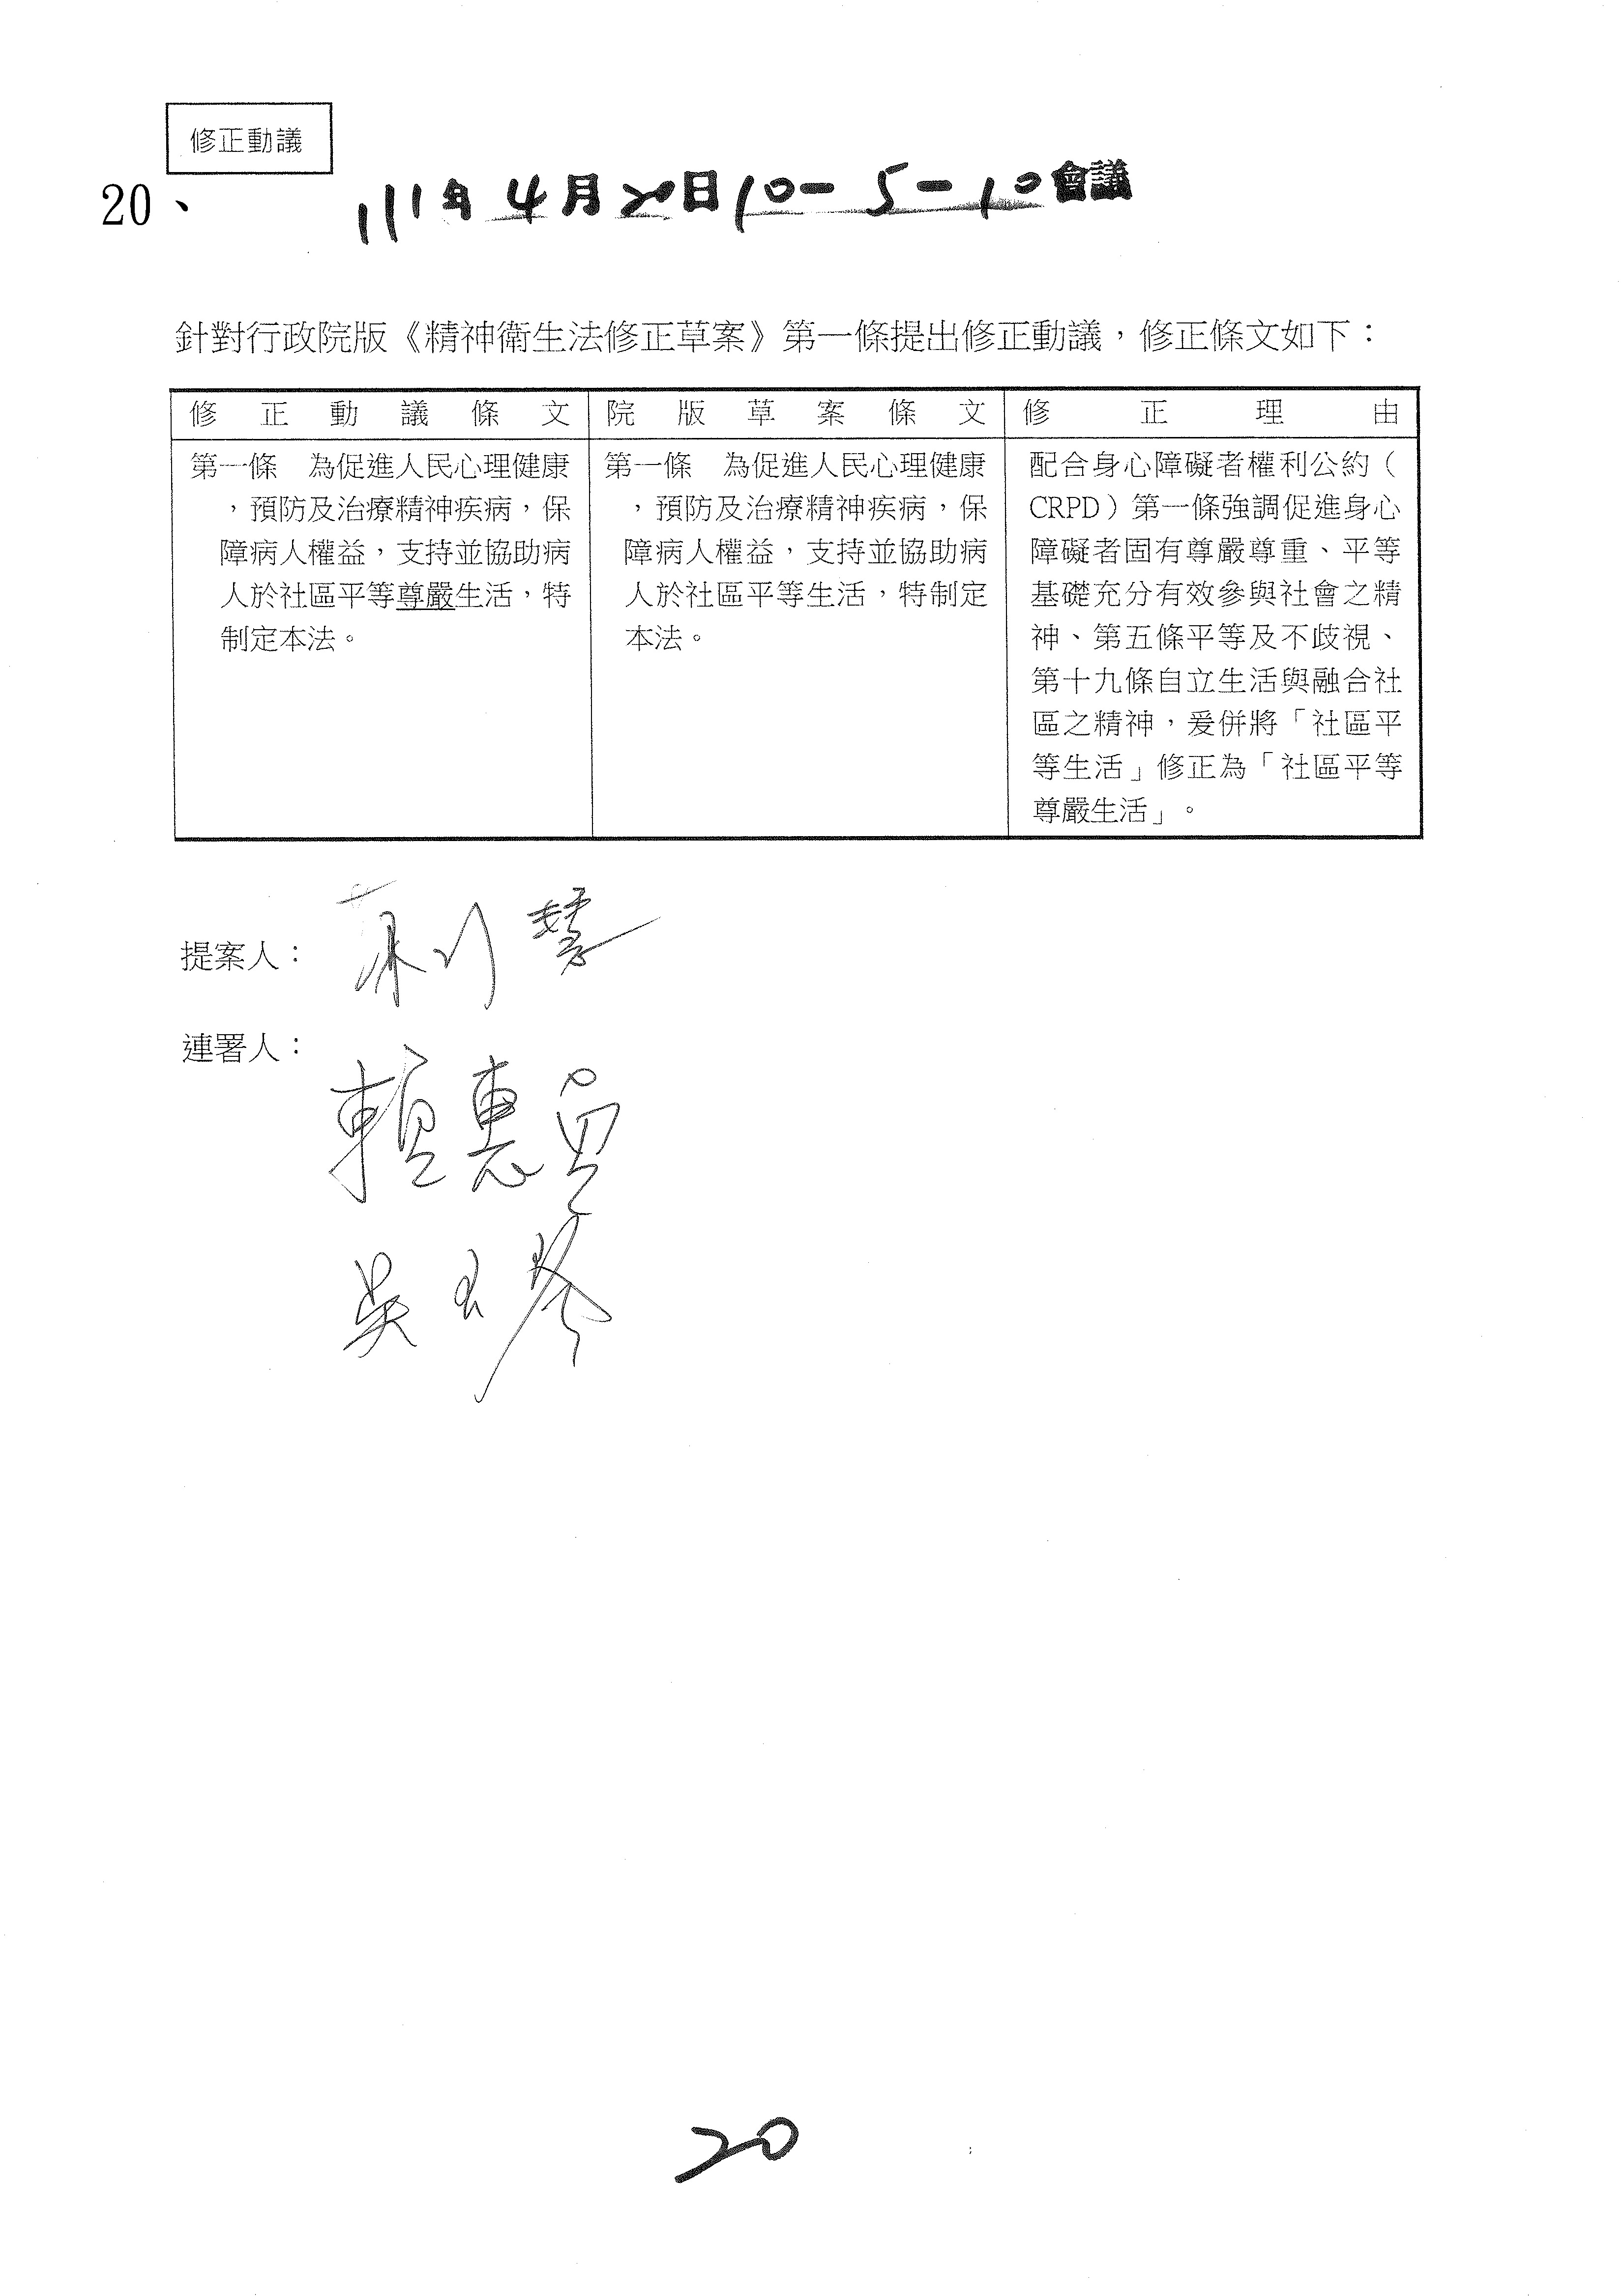 修正動議
20、
111年4月20日10-5-10會議
針對行政院版《精神衛生法修正草案》第一條提出修正動議，修正條文如下：
修正動議條文
第一條　為促進人民心理健康
，預防及治療精神疾病，保
障病人權益，支持並協助病
人於社區平等尊嚴生活，特
制定本法。
院版草案條文
第一條　為促進人民心理健康
，預防及治療精神疾病，保
障病人權益，支持並協助病
人於社區平等生活，特制定
本法。
修正理由
配合身心障礙者權利公約（
CRPD）第一條強調促進身心
障礙者固有尊嚴尊重、平等
基礎充分有效參與社會之精
神、第五條平等及不歧視、
第十九條自立生活與融合社
區之精神，爰併將「社區平
等生活」修正為「社區平等
尊嚴生活」。
提案人：
連署人：
賴惠員
吳玉琴
20